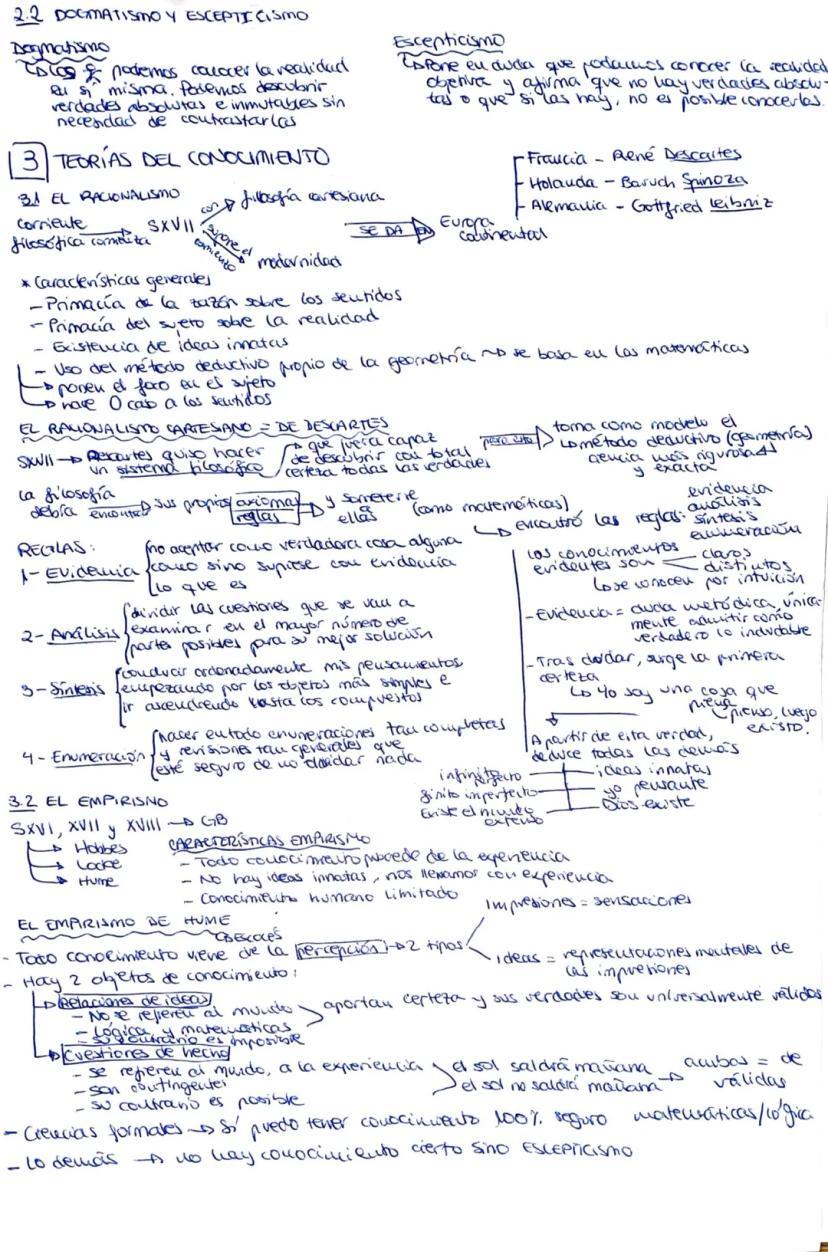 2.2 DOGMATISMO Y ESCEPTICISMO
Dogmatismo
podemos conocer la realidad
en sí misma. Podemos descubrir
verdades absolutas e inmutables sin
necesidad de contrastarlas
Escepticismo
Pone en duda que podamos conocer la realidad
objetiva y afirma que no hay verdades absolu-
tas o que si las hay, no es posible conocerlas.
3 TEORÍAS DEL CONOCIMIENTO
3.1 EL RACIONALISMO
corriente
filosófica
SXVII
con filosofía cartesiana
supone el
comienzo
modernidad
SE DA EN
Europa
continental
Francia - René Descartes
Holanda - Baruch Spinoza
Alemania - Gottfried Leibniz
* Características generales
- Primacía de la razón sobre los sentidos
- Primacía del sujeto sobre la realidad
- Existencia de ideas innatas
- Uso del método deductivo propio de la geometría → se basa en las matemáticas
→ ponen el foco en el sujeto
→ hace 0 caso a los sentidos
EL RACIONALISMO CARTESANO = DE DESCARTES
SXVII → Descartes quiso hacer
un sistema filosófico
que fuera capaz
de descubrir con total
certeza todas las verdades
para esto
toma como modelo el
método deductivo (geometría)
ciencia más rigurosa
y exacta
La filosofía
debría encontrar
sus propios axiomas
reglas
y someterse
a ellas
(como matemáticas)
encontró las reglas:
evidencia
análisis
síntesis
enumeración
REGLAS:
1- Evidencia
no aceptar como verdadera cosa alguna
como sino supiese con evidencia
lo que es
2- Análisis
dividir las cuestiones que se van a
examinar en el mayor número de
partes posibles para su mejor solución
3- Síntesis
conducir ordenadamente mis pensamientos
empezando por los objetos más simples e
ir ascendiendo hasta los compuestos
4- Enumeración
hacer en todo enumeraciones tan completas
y revisiones tan generales que
esté seguro de no olvidar nada
los conocimientos
evidentes son
claros
distintos
se conocen por intuición
- Evidencia = duda metódica, única-
mente admitir como
verdadero lo indudable
- Tras dudar, surge la primera
certeza
Yo soy una cosa que
piensa
pienso, luego
existo.
A partir de esta verdad,
deduce todas las demás
infinito perfecto
finito imperfecto
Existe el mundo
extenso
ideas innatas
yo pensante
Dios existe
3.2 EL EMPIRISNO
SXVI, XVII y XVIII → GB
Hobbes
Locke
Hume
CARACTERÍSTICAS EMPIRISMO
- Todo conocimiento procede de la experiencia
- No hay ideas innatas, nos llenamos con experiencia
- Conocimiento humano limitado
EL EMPIRISMO DE HUME
ESCOCÉS
- Todo conocimiento viene de la percepción → 2 tipos
impresiones = sensaciones
ideas = representaciones mentales de
las impresiones
- Hay 2 objetos de conocimiento:
Relaciones de ideas
- No se refieren al mundo
- Lógica y matemáticas
- su contrario es imposible
aportan certeza y sus verdades son universalmente válidas
Cuestiones de hecho
- se refieren al mundo, a la experiencia
- son contingentes
- su contrario es posible
el sol saldrá mañana
el sol no saldrá mañana
ambas = de
válidas
- Ciencias formales → Sí puedo tener conocimiento 100% seguro matemáticas/lógica
- Lo demás → no hay conocimiento cierto sino ESCEPTICISMO